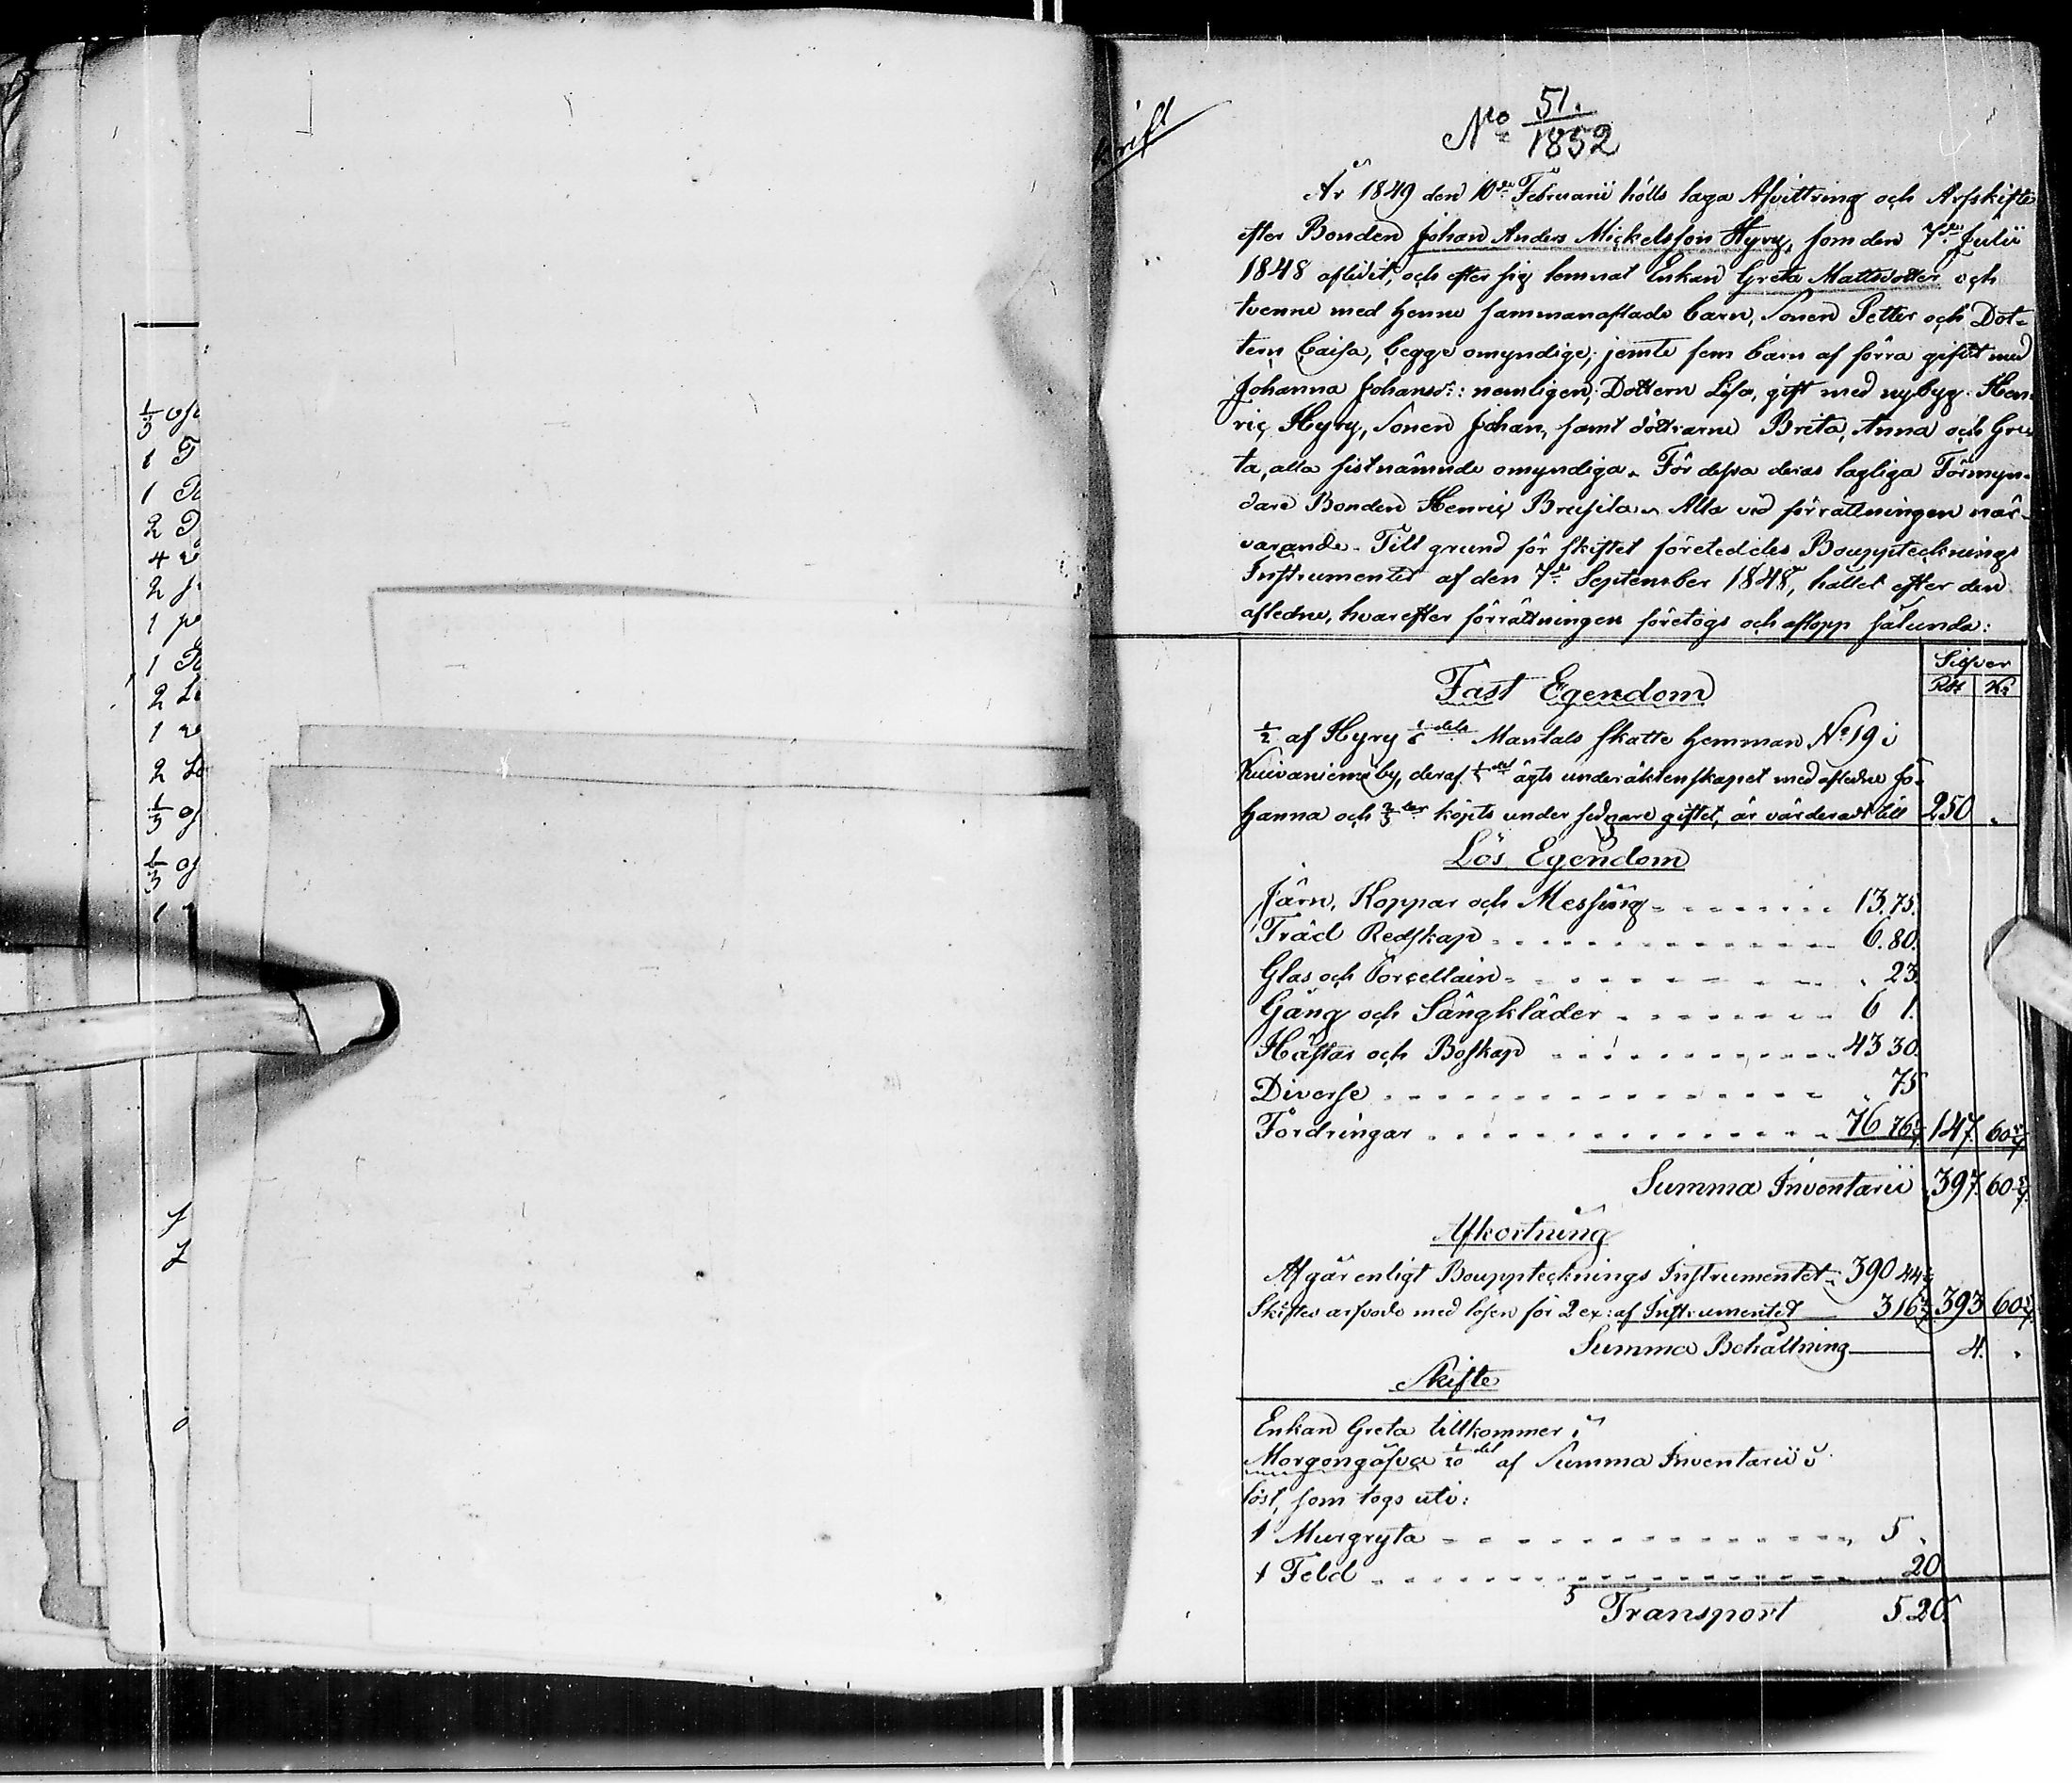 1/3
1
1
2
4
2
1
1
2
1
2
1/3
1
No 51./1852
År 1849 den 10de Februarii hölls laga Afvittring och Arfskifte
efter Bonden Johan Anders Mickelsson Hyry, som den 7de Julii
1848 aflidit, och efter sig lemnat Enkan Greta Mattsdotter och
tvenne med henne sammanaflade barn, Sonen Petter och Dot-
tern Caisa, begge omyndige, jemte fem barn af förra giftet med
Johanna Johansdr: nemligen, Dottern Lisa, gift med nybyg. Hen-
ric Hyry, Sonen Johan, samt döttrarne Brita, Anna och Gre-
ta, alla sistnämnde omyndiga. För dessa deras lagliga Förmyn-
dare Bonden Henric Brusila. Alla vid förrättningen när-
varande. Till grund för skiftet företeddes Boupptecknings
Instrumentet af den 7de September 1848, hållet efter den
afledne, hvarefter förrättningen företogs och aflopp sålunda:
Silfver
Rbl Ko
Fast Egendom
1/2 af Hyry dels Mantals Skatte hemman No 19 i
Kuivaniemi by, deraf ägts under äktenskapet med aflidne Jo-
hanna och köpts under sednare giftet, är värderadt till 250 .
Lös Egendom
Järn, Koppar och Messing 13.75.
Träd Redskap 6.80.
Glas och Porcellain . 23.
Gång och Sängkläder 6 1.
Hästar och Boskap 43 30.
Diverse . 75
Fordringar 76 76 147. 60
Summa Inventarii 397. 60
Afkortning
Afgår enligt Bouppteckningsinstrumentet 390 44
Skiftes arfvode med lösen för 2 ex: af Instrumentet 3 16 393 60
Summa Behållning 4. .
Skifte
Enkan Greta tillkommer i
Morgongåfva 1/20 del af Summa Inventarii i
löst, som togs uti:
1 Murgryta 5 .
1 Feld . 20
Transport 5 20.